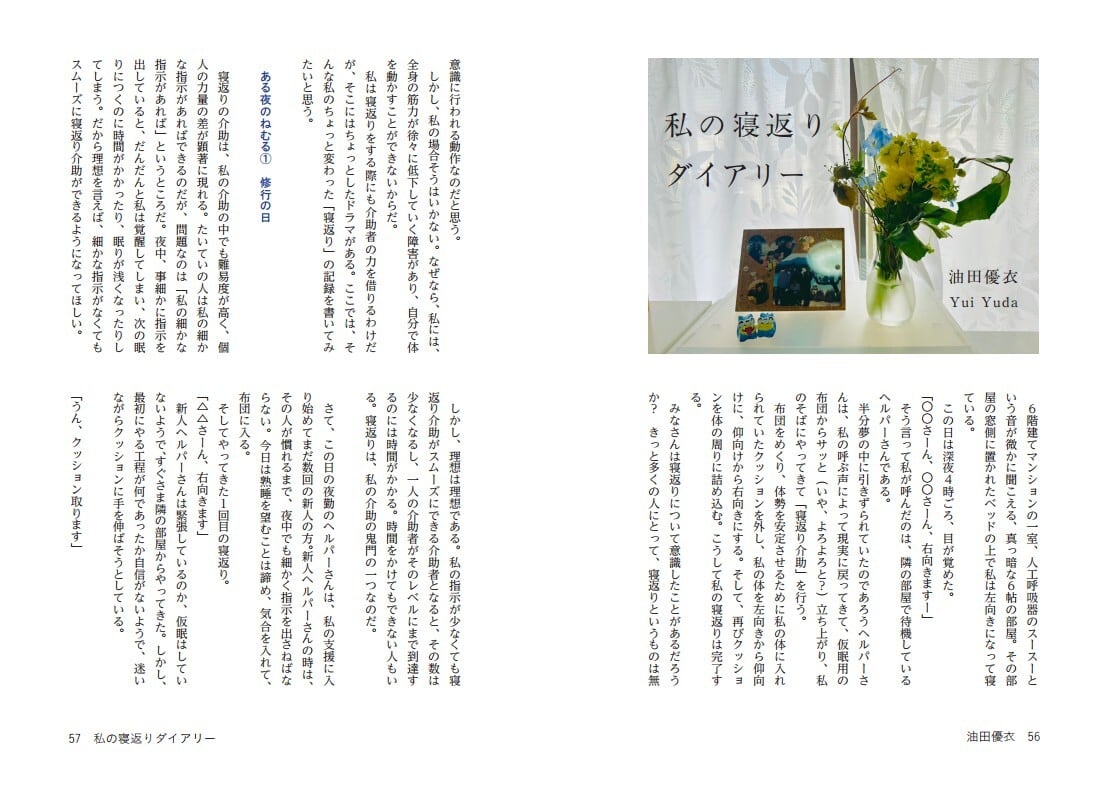 私の寝返り
ダイアリー
油田優衣
Yui Yuda
　6階建てマンションの一室、人工呼吸器のスースーと
いう音が微かに聞こえる、真っ暗な6帖の部屋。その部
屋の窓側に置かれたベッドの上で私は左向きになって寝
ている。
　この日は深夜4時ごろ、目が覚めた。
「〇〇さーん、〇〇さーん、右向きますー」
　そう言って私が呼んだのは、隣の部屋で待機している
ヘルパーさんである。
　半分夢の中に引きずられていたのであろうヘルパーさ
んは、私の呼ぶ声によって現実に戻ってきて、仮眠用の
布団からサッと（いや、よろよろと？）立ち上がり、私
のそばにやってきて「寝返り介助」を行う。
　布団をめくり、体勢を安定させるために私の体に入れ
られていたクッションを外し、私の体を左向きから仰向
けに、仰向けから右向きにする。そして、再びクッショ
ンを体の周りに詰め込む。こうして私の寝返りは完了す
る。
　みなさんは寝返りについて意識したことがあるだろう
か？　きっと多くの人にとって、寝返りというものは無
油田優衣　56
意識に行われる動作なのだと思う。
　しかし、私の場合そうはいかない。なぜなら、私には、
全身の筋力が徐々に低下していく障害があり、自分で体
を動かすことができないからだ。
　私は寝返りをする際にも介助者の力を借りるわけだ
が、そこにはちょっとしたドラマがある。ここでは、そ
んな私のちょっと変わった「寝返り」の記録を書いてみ
たいと思う。
ある夜のねむる①　修行の日
　寝返りの介助は、私の介助の中でも難易度が高く、個
人の力量の差が顕著に現れる。たいていの人は私の細か
な指示があればできるのだが、問題なのは「私の細かな
指示があれば」というところだ。夜中、事細かに指示を
出していると、だんだんと私は覚醒してしまい、次の眠
りにつくのに時間がかかったり、眠りが浅くなったりし
てしまう。だから理想を言えば、細かな指示がなくても
スムーズに寝返り介助ができるようになってほしい。
　しかし、理想は理想である。私の指示が少なくても寝
返り介助がスムーズにできる介助者となると、その数は
少なくなるし、一人の介助者がそのレベルにまで到達す
るのには時間がかかる。時間をかけてもできない人もい
る。寝返りは、私の介助の鬼門の一つなのだ。
　さて、この日の夜勤のヘルパーさんは、私の支援に入
り始めてまだ数回の新人の方。新人ヘルパーさんの時は、
その人が慣れるまで、夜中でも細かく指示を出さねばな
らない。今日は熟睡を望むことは諦め、気合を入れて、
布団に入る。
　そしてやってきた1回目の寝返り。
「△△さーん、右向きます」
　新人ヘルパーさんは緊張しているのか、仮眠はしてい
ないようで、すぐさま隣の部屋からやってきた。しかし、
最初にやる工程が何であったか自信がないようで、迷い
ながらクッションに手を伸ばそうとしている。
「うん、クッション取ります」
57　私の寝返りダイアリー